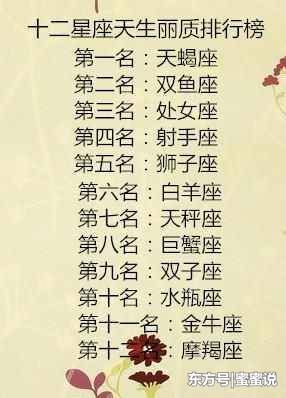 十二星座天生丽质排行榜
第一名：天蝎座
第二名：双鱼座
第三名：处女座
第四名：射手座
第五名：狮子座
第六名：白羊座
第七名：天秤座
第八名：巨蟹座
第九名：双子座
第十名：水瓶座
第十一名：金牛座
第十二名：摩羯座
东方号|蜜蜜说